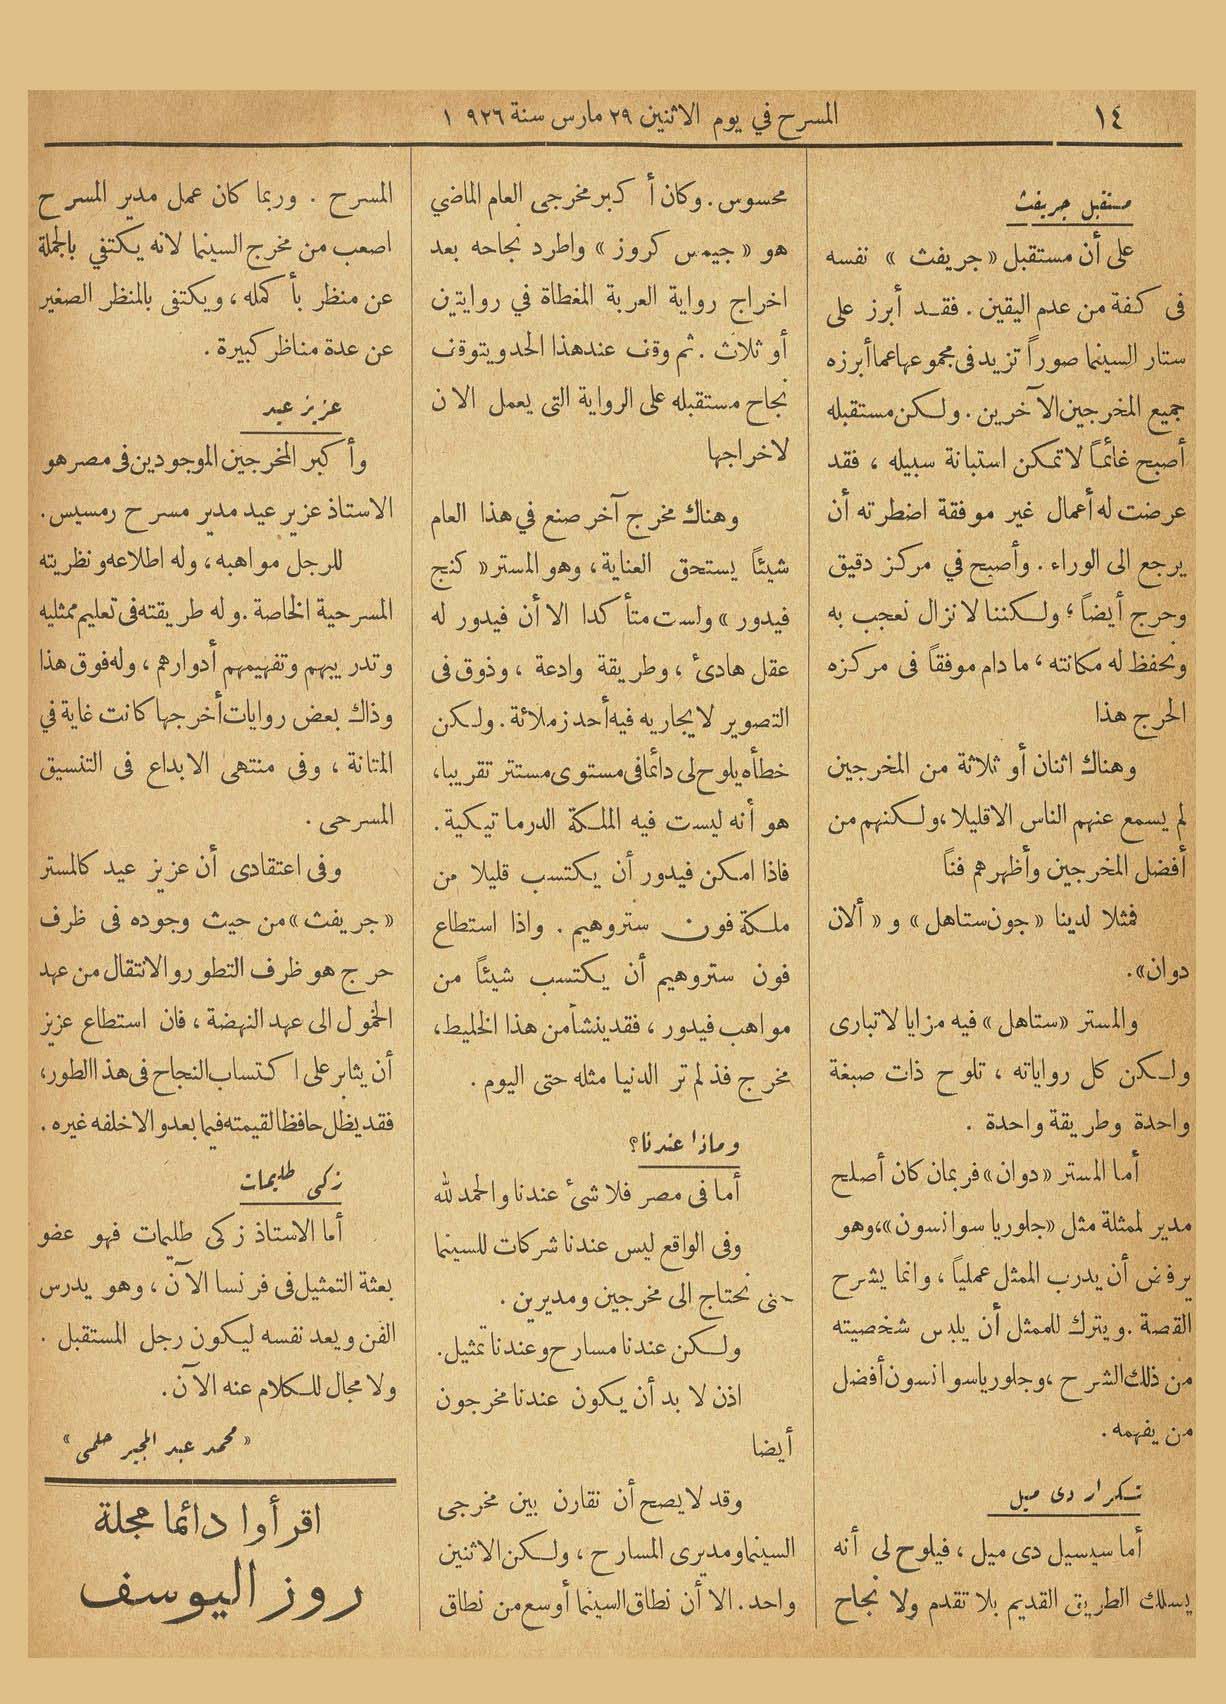 ١٤
المسرح في يوم الاثنين ٢٩ مارس سنة ١٩٢٦
مستقبل جريفث
على أن مستقبل «جريفث» نفسه
فى كفة من عدم اليقين . فقد أبرز على
ستار السينما صوراً تزيد فى مجموعها عما أبرزه
جميع المخرجين الآخرين . ولكن مستقبله
أصبح غائماً لا تمكن استبانة سبيله ، فقد
عرضت له أعمال غير موفقة اضطرته أن
يرجع الى الوراء . وأصبح في مركز دقيق
وحرج أيضاً ؛ ولكننا لا نزال نعجب به
ونحفظ له مكانته ، ما دام موفقاً فى مركزه
الحرج هذا
وهناك اثنان أو ثلاثة من المخرجين
لم يسمع عنهم الناس الا قليلا ، ولكنهم من
أفضل المخرجين وأظهرهم فناً
فمثلا لدينا «جون ستاهل» و «ألان
دوان» .
والمستر «ستاهل» فيه مزايا لا تبارى
ولكن كل رواياته ، تلوح ذات صبغة
واحدة وطريقة واحدة .
أما المستر «دوان» فربمان كان أصلح
مدير لممثلة مثل «جلوريا سوانسون» ، وهو
يرفض أن يدرب الممثل عملياً ، وانما يشرح
القصة . ويترك للممثل أن يلبس شخصيته
من ذلك الشرح ، وجلوريا سوانسون أفضل
من يفهمه .
تكرار دى ميل
أما سيسيل دى ميل ، فيلوح لى أنه
يسلك الطريق القديم بلا تقدم ولا نجاح
محسوس . وكان أكبر مخرجى العام الماضي
هو «جيمس كروز» واطرد نجاحه بعد
اخراج رواية العربة المغطاة في روايتين
أو ثلاث . ثم وقف عند هذا الحد ويتوقف
نجاح مستقبله على الرواية التى يعمل الان
لاخراجها
وهناك مخرج آخر صنع في هذا العام
شيئاً يستحق العناية ، وهو المستر «كنج
فيدور» ولست متأكدا الا أن فيدور له
عقل هادئ ، وطريقة وادعة ، وذوق فى
التصوير لا يجاريه فيه أحد زملائة . ولكن
خطأه يلوح لى دائما فى مستوى مستتر تقريبا ،
هو أنه ليست فيه الملكة الدرماتيكية .
فاذا امكن فيدور أن يكتسب قليلا من
ملكة فون ستروهيم . واذا استطاع
فون ستروهيم أن يكتسب شيئاً من
مواهب فيدور ، فقد ينشأ من هذا الخليط ،
مخرج فذ لم تر الدنيا مثله حتى اليوم .
وماذا عندنا؟
أما فى مصر فلا شئ عندنا والحمد لله
وفى الواقع ليس عندنا شركات للسينما
حتى نحتاج الى مخرجين ومديرين .
ولكن عندنا مسارح وعندنا تمثيل .
اذن لا بد أن يكون عندنا مخرجون
أيضا
وقد لا يصح أن نقارن بين مخرجى
السينما ومديرى المسارح ، ولكن الاثنين
واحد . الا أن نطاق السينما أوسع من نطاق
المسرح . وربما كان عمل مدير المسرح
اصعب من مخرج السينما لانه يكتفي بالجملة
عن منظر بأكمله ، ويكتفى بالمنظر الصغير
عن عدة مناظر كبيرة .
عزيز عيد
وأكبر المخرجين الموجودين فى مصر هو
الاستاذ عزير عيد مدير مسرح رمسيس .
للرجل مواهبه ، وله اطلاعه ونظريته
المسرحية الخاصة . وله طريقته فى تعليم ممثليه
وتدريبهم وتفهيمهم أدوارهم ، وله فوق هذا
وذاك بعض روايات أخرجها كانت غاية في
المتانة ، وفى منتهى الابداع فى التنسيق
المسرحى .
وفى اعتقادى أن عزيز عيد كالمستر
«جريفث» من حيث وجوده فى ظرف
حرج هو ظرف التطور والانتقال من عهد
الخمول الى عهد النهضة ، فان استطاع عزيز
أن يثابر على اكتساب النجاح فى هذا الطور ،
فقد يظل حافظا لقيمته فيما بعد والا خلفه غيره .
زكى طليمات
أما الاستاذ زكى طليمات فهو عضو
بعثة التمثيل فى فرنسا الآن ، وهو يدرس
الفن ويعد نفسه ليكون رجل المستقبل .
ولا مجال للكلام عنه الآن .
«محمد عبد المجير حلمى»
اقرأوا دائما مجلة
روز اليوسف